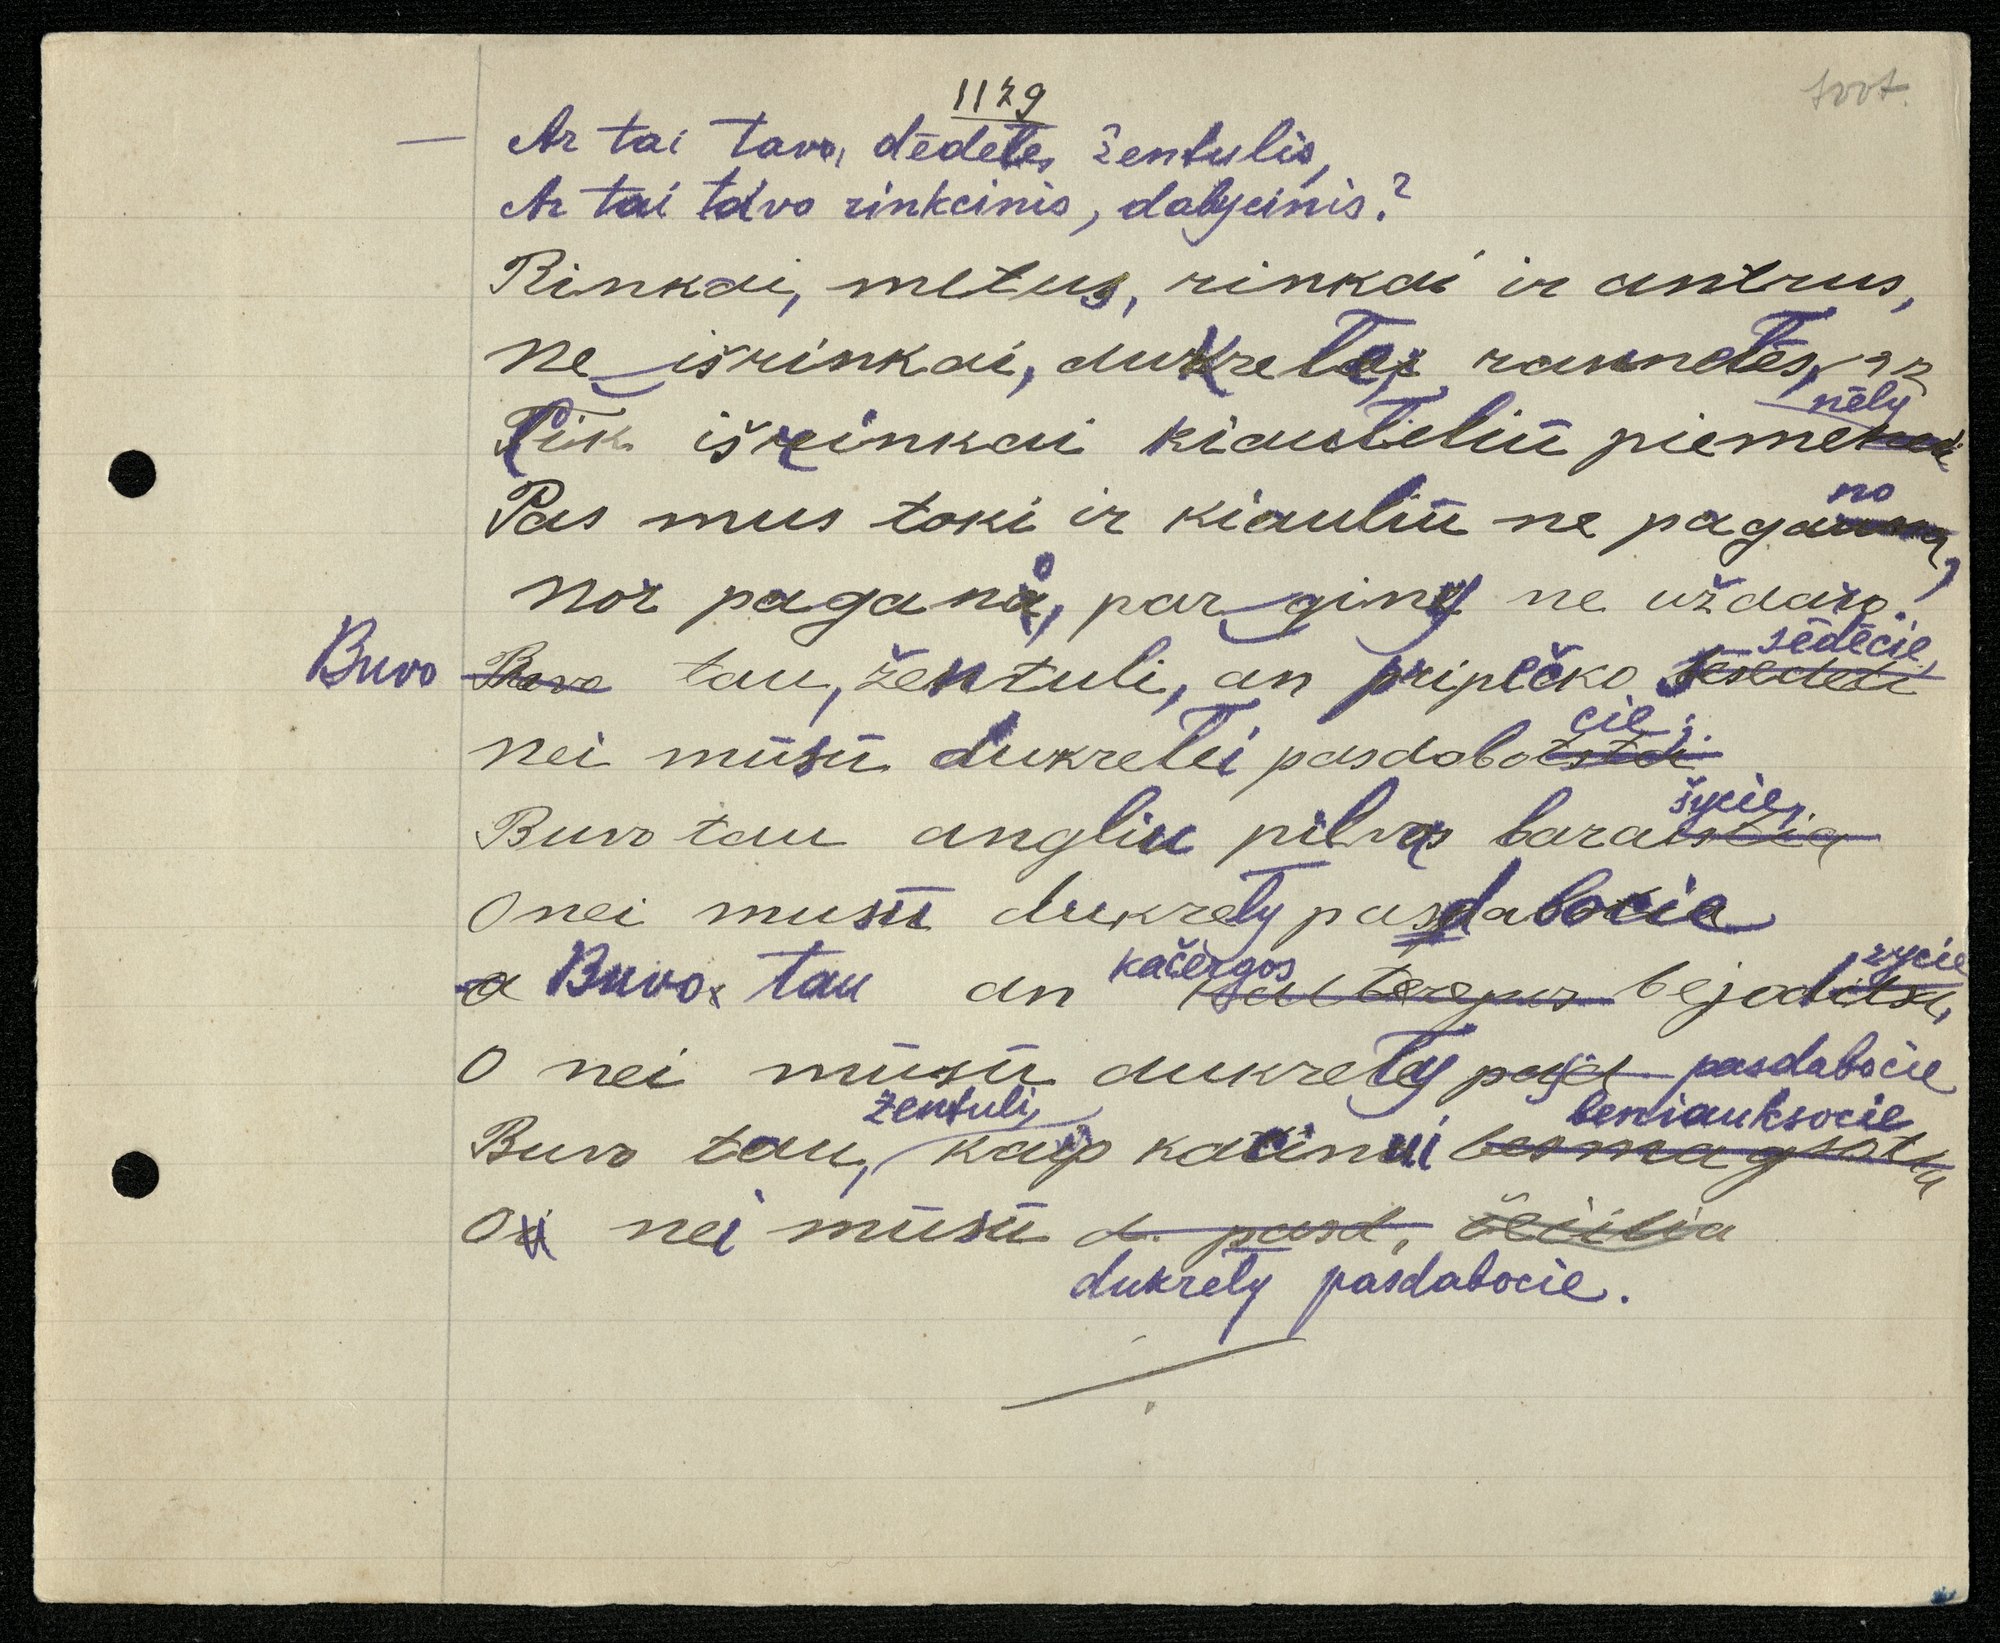 1129
— Ar tai tavo, dėdėte, žentulis,
Ar tai tavo rinkcinis, dabycinis?
Rinkai, metus, rinkai ir antrus,
ne išrinkai, dukrelei,
Tik išrinkai kiauleliū piemenėly
Pas mus toki ir kiauliū ne pagano,
nor pagano, par giny ne uždaro.
Buvo tau, žentuli, an pripečko sėdėcie,
nei mūsū dukretei pasdabocie.
Buvo tau angliu pilvas baražycie,
O nei musū dukrely pasdabocie
Buvo tau an kačergos bejodzycie,
O nei mūsū dukrety pasdabocie
Buvo tau, žentuli, kaip katinui beniauksocie
Oi nei mūsū
dukrely pasdabocie.